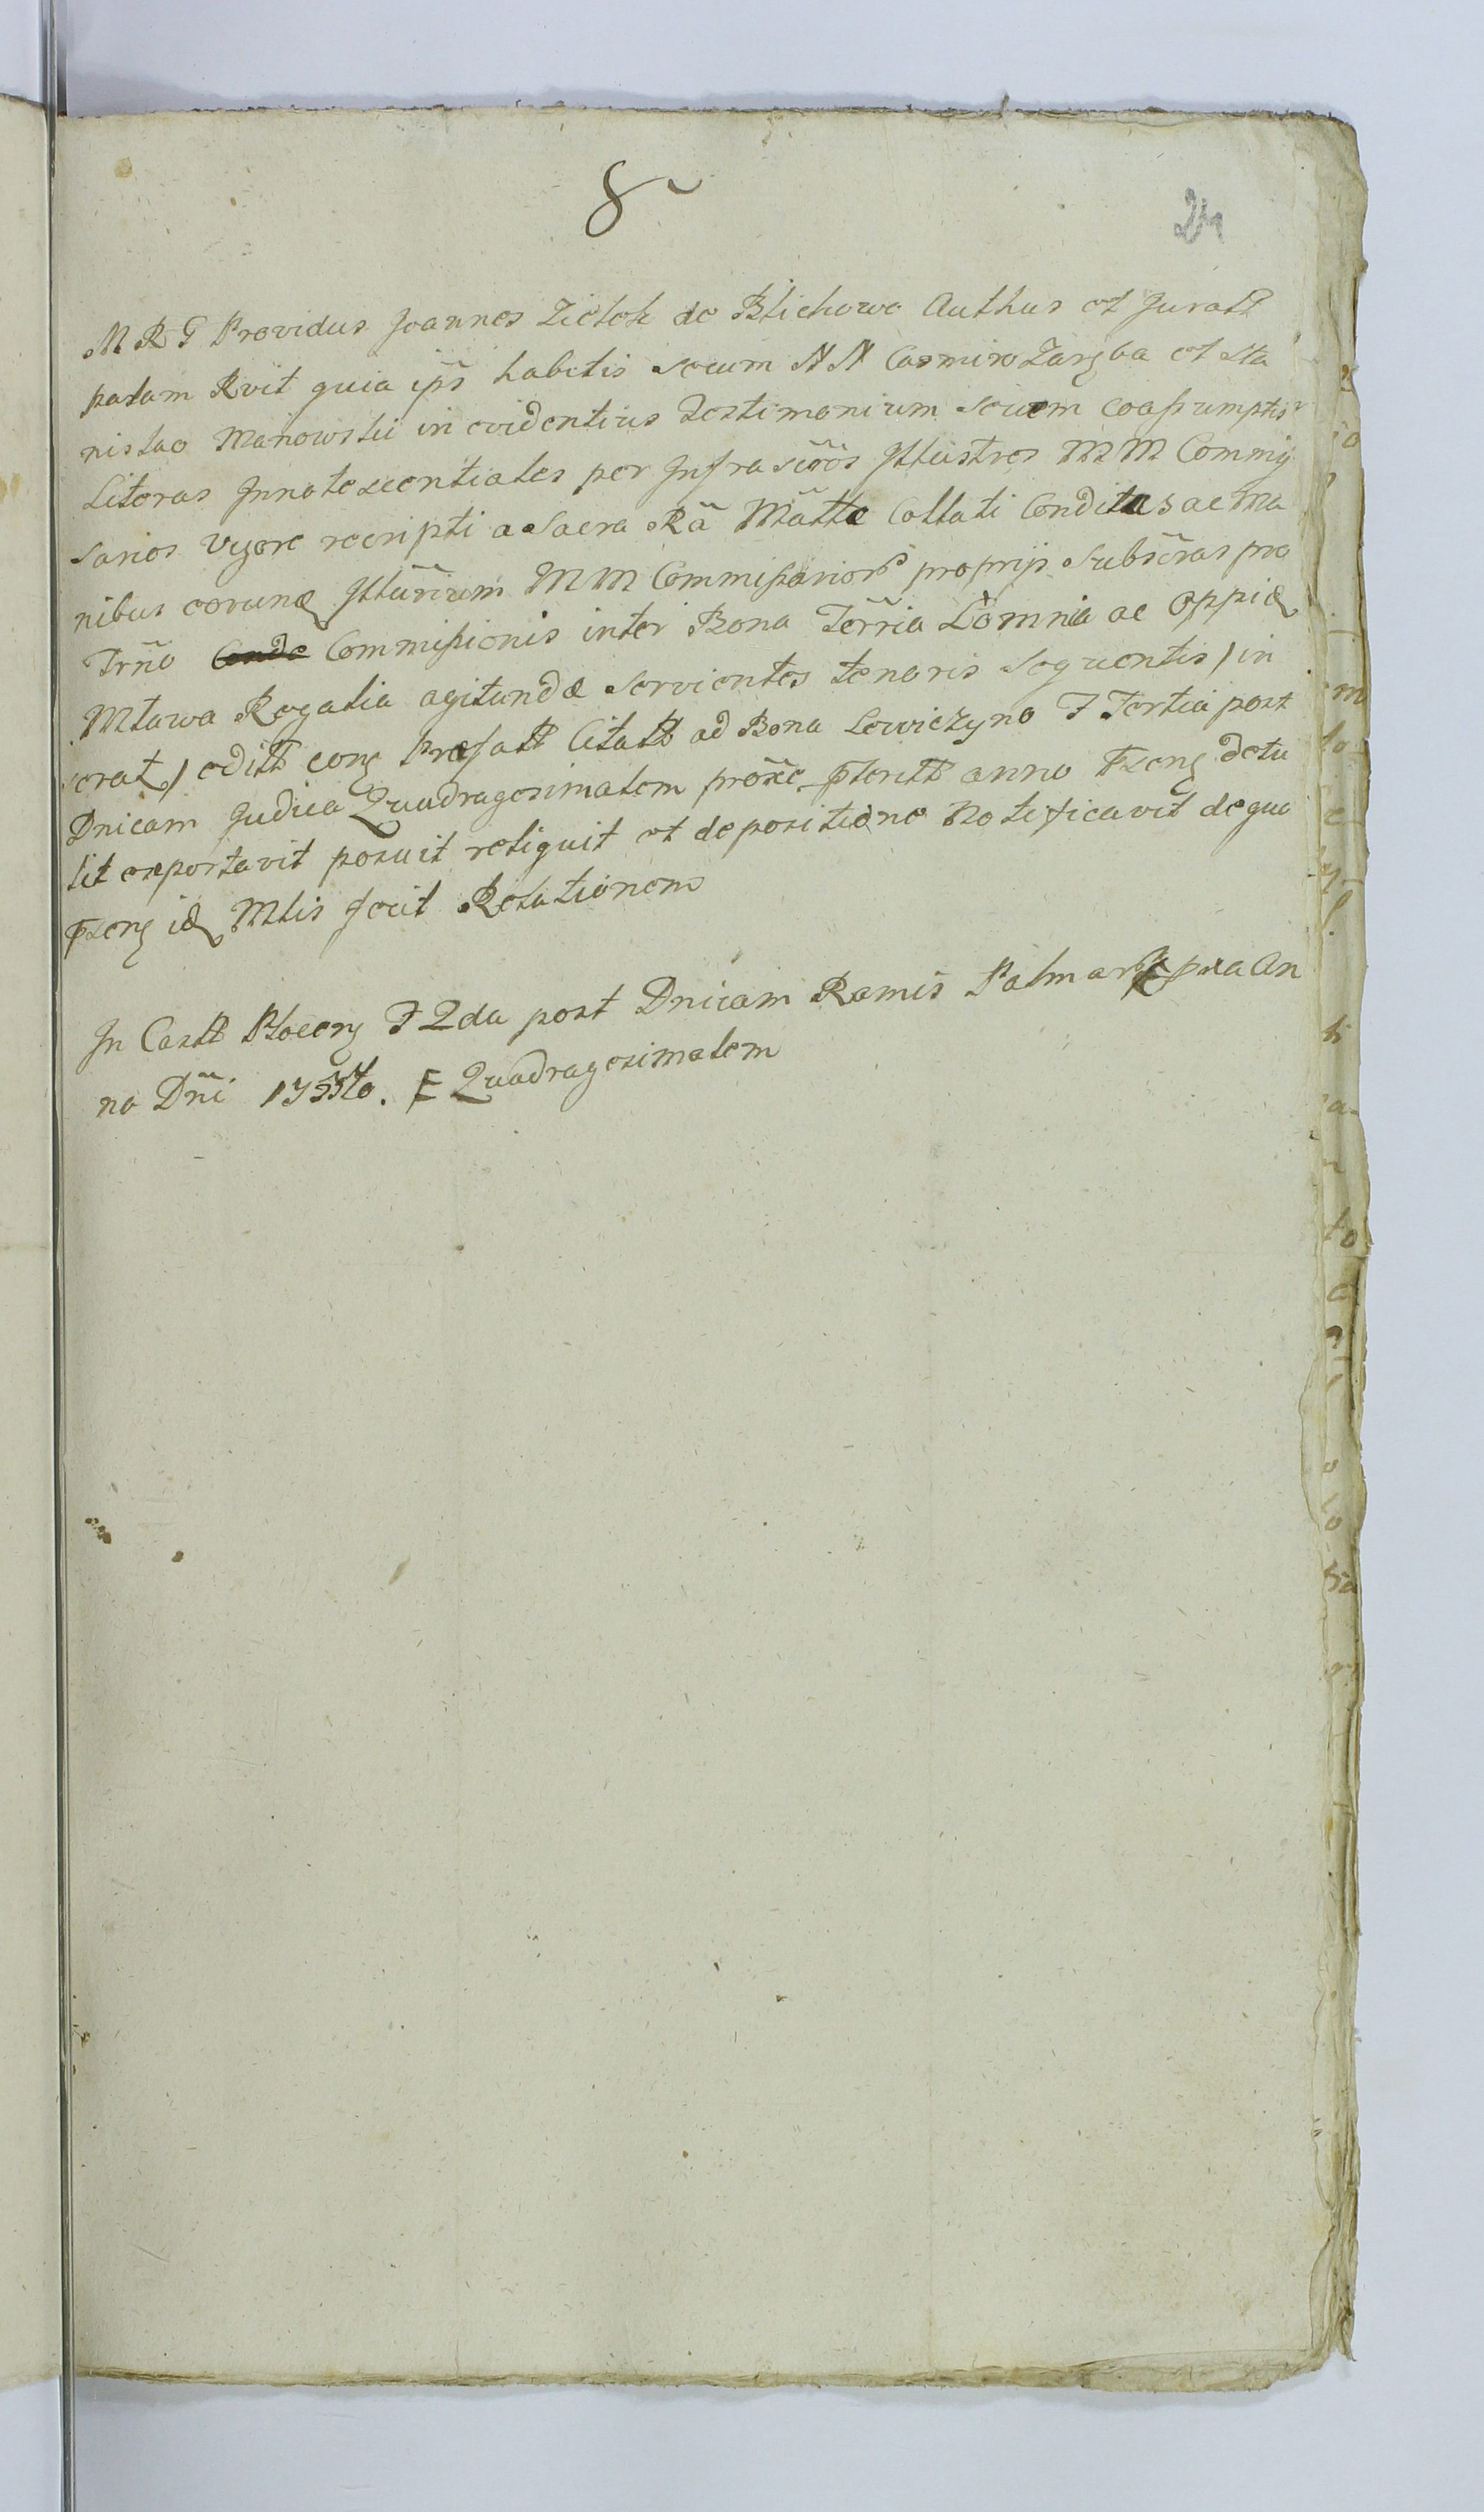 8
24
M R G Providus Joannes Zietek de Blichowo Authus et Juratt
palam Rvit quia ipse habitis secum NN Casmiro Zaręba et Sta
nislao Manowski in evidentius Testimonium secum coassumptis
Literas Innotescentiales per Infrascros Illustres MM Commis
sarios vigore rescripti a Sacra Ra Matte Collati Conditas ac Ma
nibus eorund Illurium MM Commissariorum proprijs Subscras pro
Trno Commissionis inter Bona Terria Lomnia ac Oppid
Mlawa Regalia agitundæ servientes tenoris sequentis / in
serat / editt eong Præfatt Citatt ad Bona Lewiczyno F Tertia post
Dnicam Judica Quadragesimalem proxe pteritt anno pseng detu
lit exportavit posuit reliquit et depositione notificavit de quo
pseng id Mlis fecit Relationem
In Castt Plocen F 2da post Dnicam Ramis Palmar pxa An
no Dni Quadragesimalem